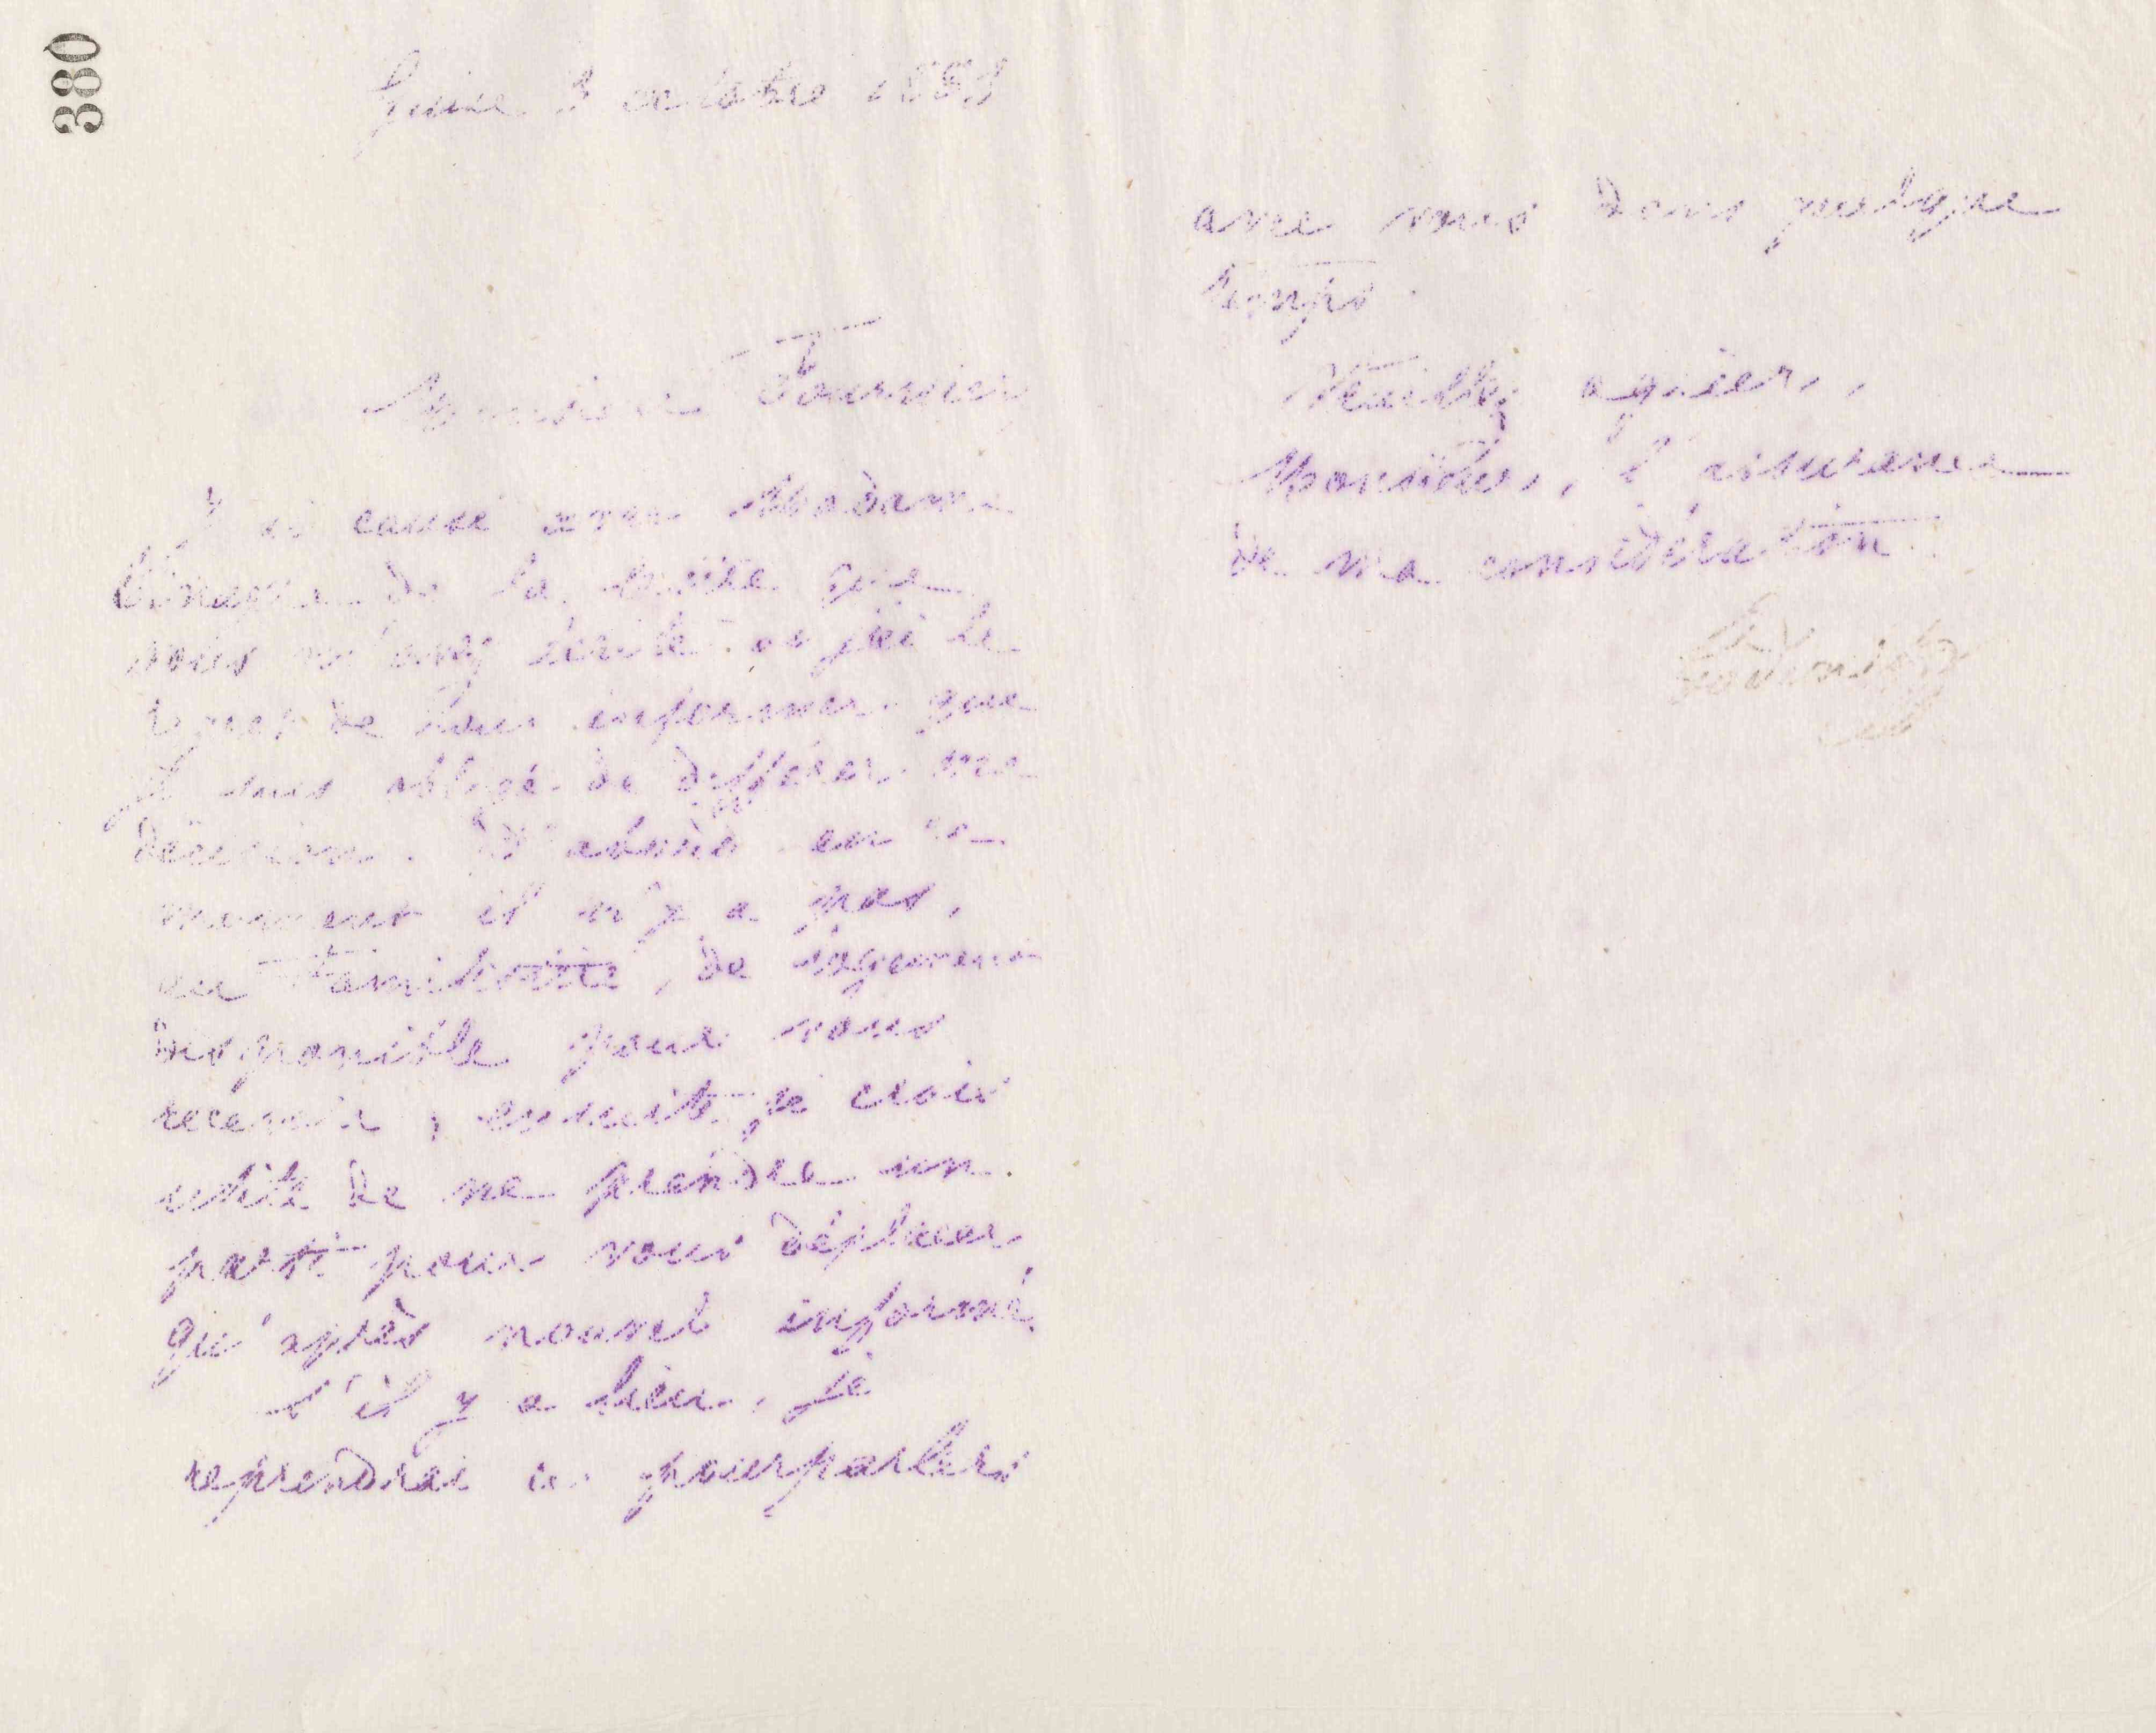 380
Guise 3 octobre 188
Monsieur Fournier,
J'ai causé avec Madame
de la lettre que
vous m'avez écrite et j'ai le
regret de vous informer que
je suis obligé de différer ma
décision. D'abord en ce
moment il n'y a pas,
au Familistère, de logement
disponible pour vous
recevoir ; ensuite je crois
utile de ne prendre un
parti pour vous déplacer
qu'après nouvel informé.
S'il y a lieu, je
reprendrai les pourparlers
avec vous dans quelque
temps.
Veuillez agréer,
Monsieur, l'assurance
de ma considération
Godin